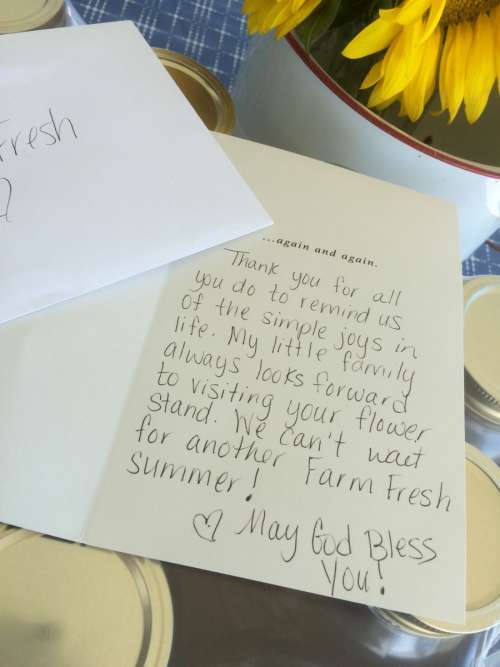 Fresh
...again and again.
Thank you for all
you do to remind us
of the simple joys in
life. My little family
always looks forward
to visiting your flower
stand. We can't wait
for another Farm Fresh
summer!
♡ May God Bless
You!